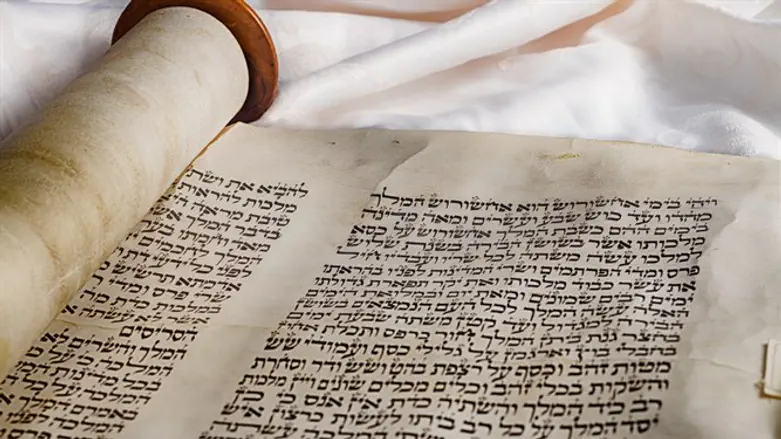 ויהי בימי אחשורוש הוא אחשורוש המלך
מהדו ועד כוש שבע ועשרים ומאה מדינה
בימים ההם כשבת המלך אחשורוש על כסא
מלכותו אשר בשושן הבירה בשנת שלוש
למלכו עשה משתה לכל שריו ועבדיו חיל
פרס ומדי הפרתמים ושרי המדינות לפניו בהראתו
את עשר כבוד מלכותו ואת יקר תפארת גדולתו
ימים רבים שמונים ומאת יום ובמלואת הימים
האלה עשה המלך לכל העם הנמצאים בשושן
הבירה למגדול ועד קטן משתה שבעת ימים
בחצר גנת ביתן המלך חור כרפס ותכלת אחוז
בחבלי בוץ וארגמן על גלילי כסף ועמודי שש
מטות זהב וכסף על רצפת בהט ושש ודר וסחרת
והשקות בכלי זהב וכלים מכלים שונים ויין מלכות
רב כיד המלך והשתיה כדת אין אנס כי כן
יסד המלך על כל רב ביתו לעשות כרצון איש
להביא את ושתי
מלכות להראות
טובת מראה היא
בדבר המלך אשר
מאד וחמתו בערה
המלך לחכמים
לפני כל ידעי דת
אדמתא תרשיש
שרי פרס ומדי
במלכות כדת מה
אשר לא עשתה את
הסריסים
המלך והשרים לא
המלכה כי על כל
באמרם המלך